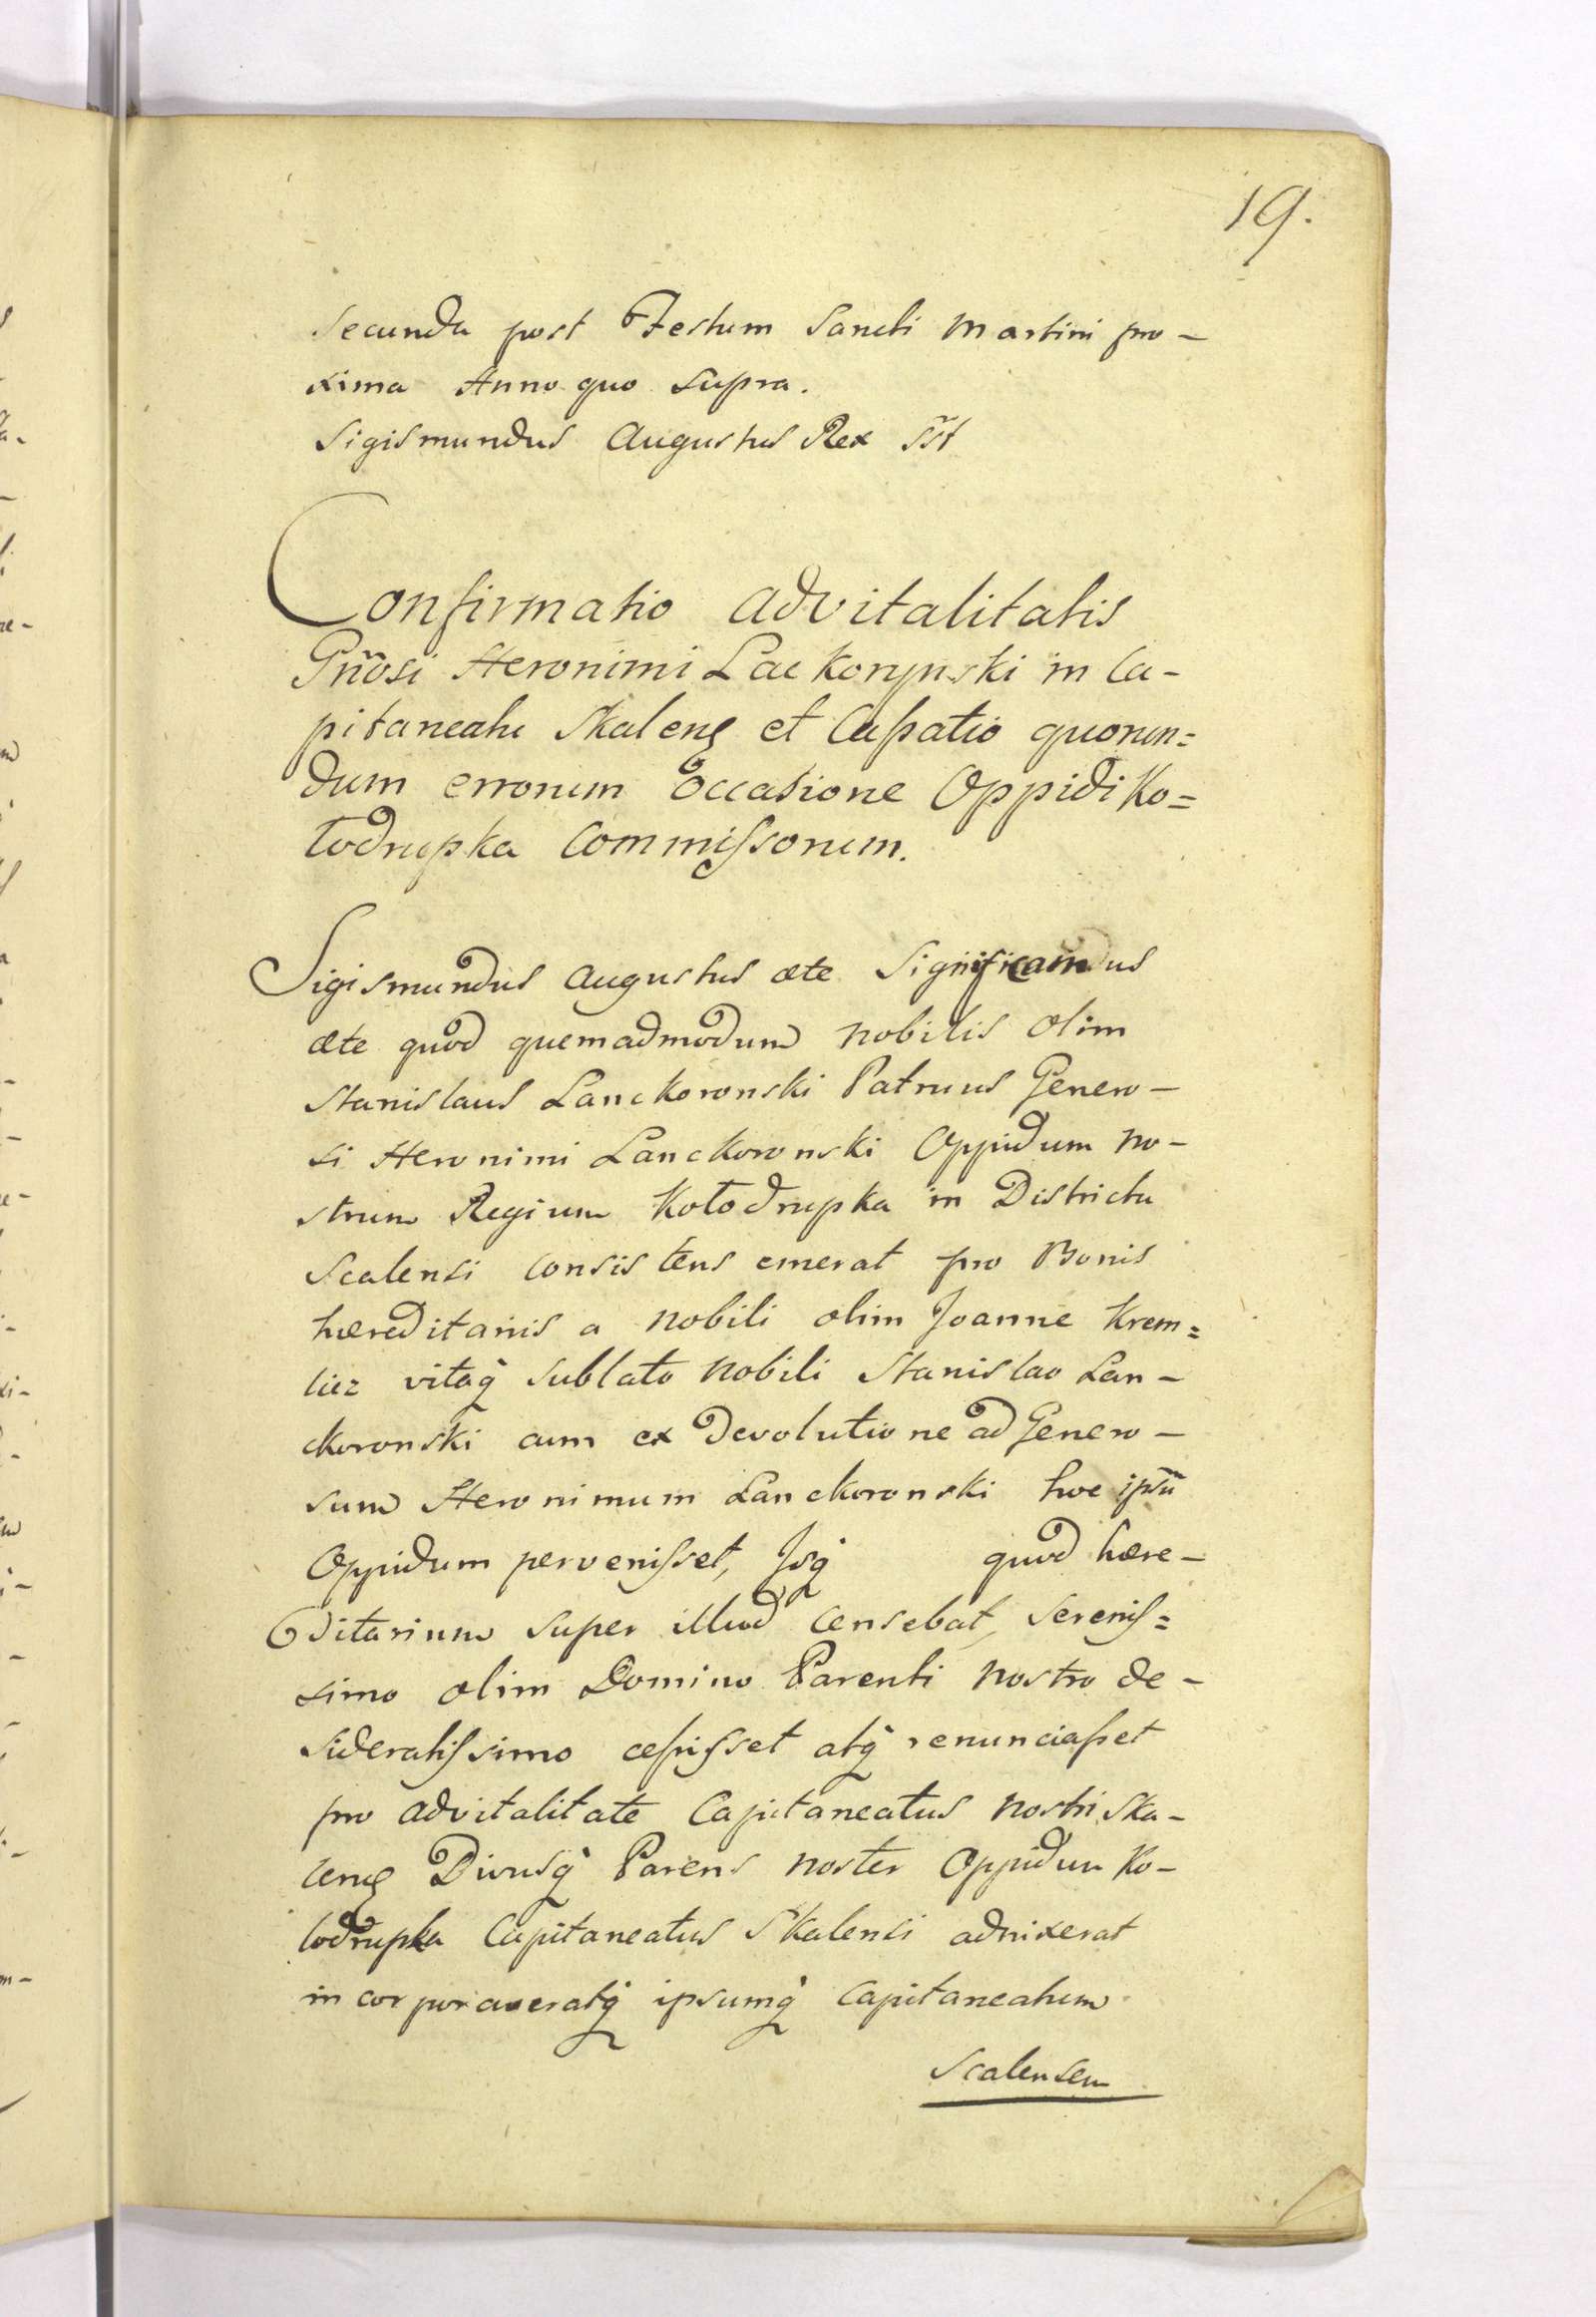 19.
secunda post Festum Sancti Martini pro-
xima Anno quo supra.
Sigismundus Augustus Rex sst
Confirmatio advitalitatis
Gñosi Heronimi Lackorynski in Ca-
pitaneatu Skaleng et Cassatio quorun=
dum errorum Occasione Oppidi Ko=
łodrupka Commissorum.
Sigismundus Augustus etc Significamus
etc quod quemadmodum nobilis olim
Stanislaus Lanckoronski Patruus Genero-
si Heronimi Lanckoronski Oppidum no-
strum Regium Kołodrupka in Districtu
Scalensi consistens emerat pro Bonis
hæreditariis a nobili olim Joanne Krem=
licz vitaq̃ sublato nobili Stanislao Lan-
ckoronski cum ex Devolutione ad Genero-
sum Heronimum Lanckoronski hoc ipsũ
Oppidum pervenisset, Jsq̃ quod hære-
ditarium super illud censebat, serenis=
simo olim Domino Parenti nostro de-
sideratissimo cessisset atq̃ renunciasset
pro advitalitate Capitaneatus nostri Ska-
leng Divusq̃ Parens noster Oppidum Ko-
lodrupka Capitaneatus Skalensi adnixerat
incorporaveratq̃ ipsumq̃ Capitaneatum
Scalensem